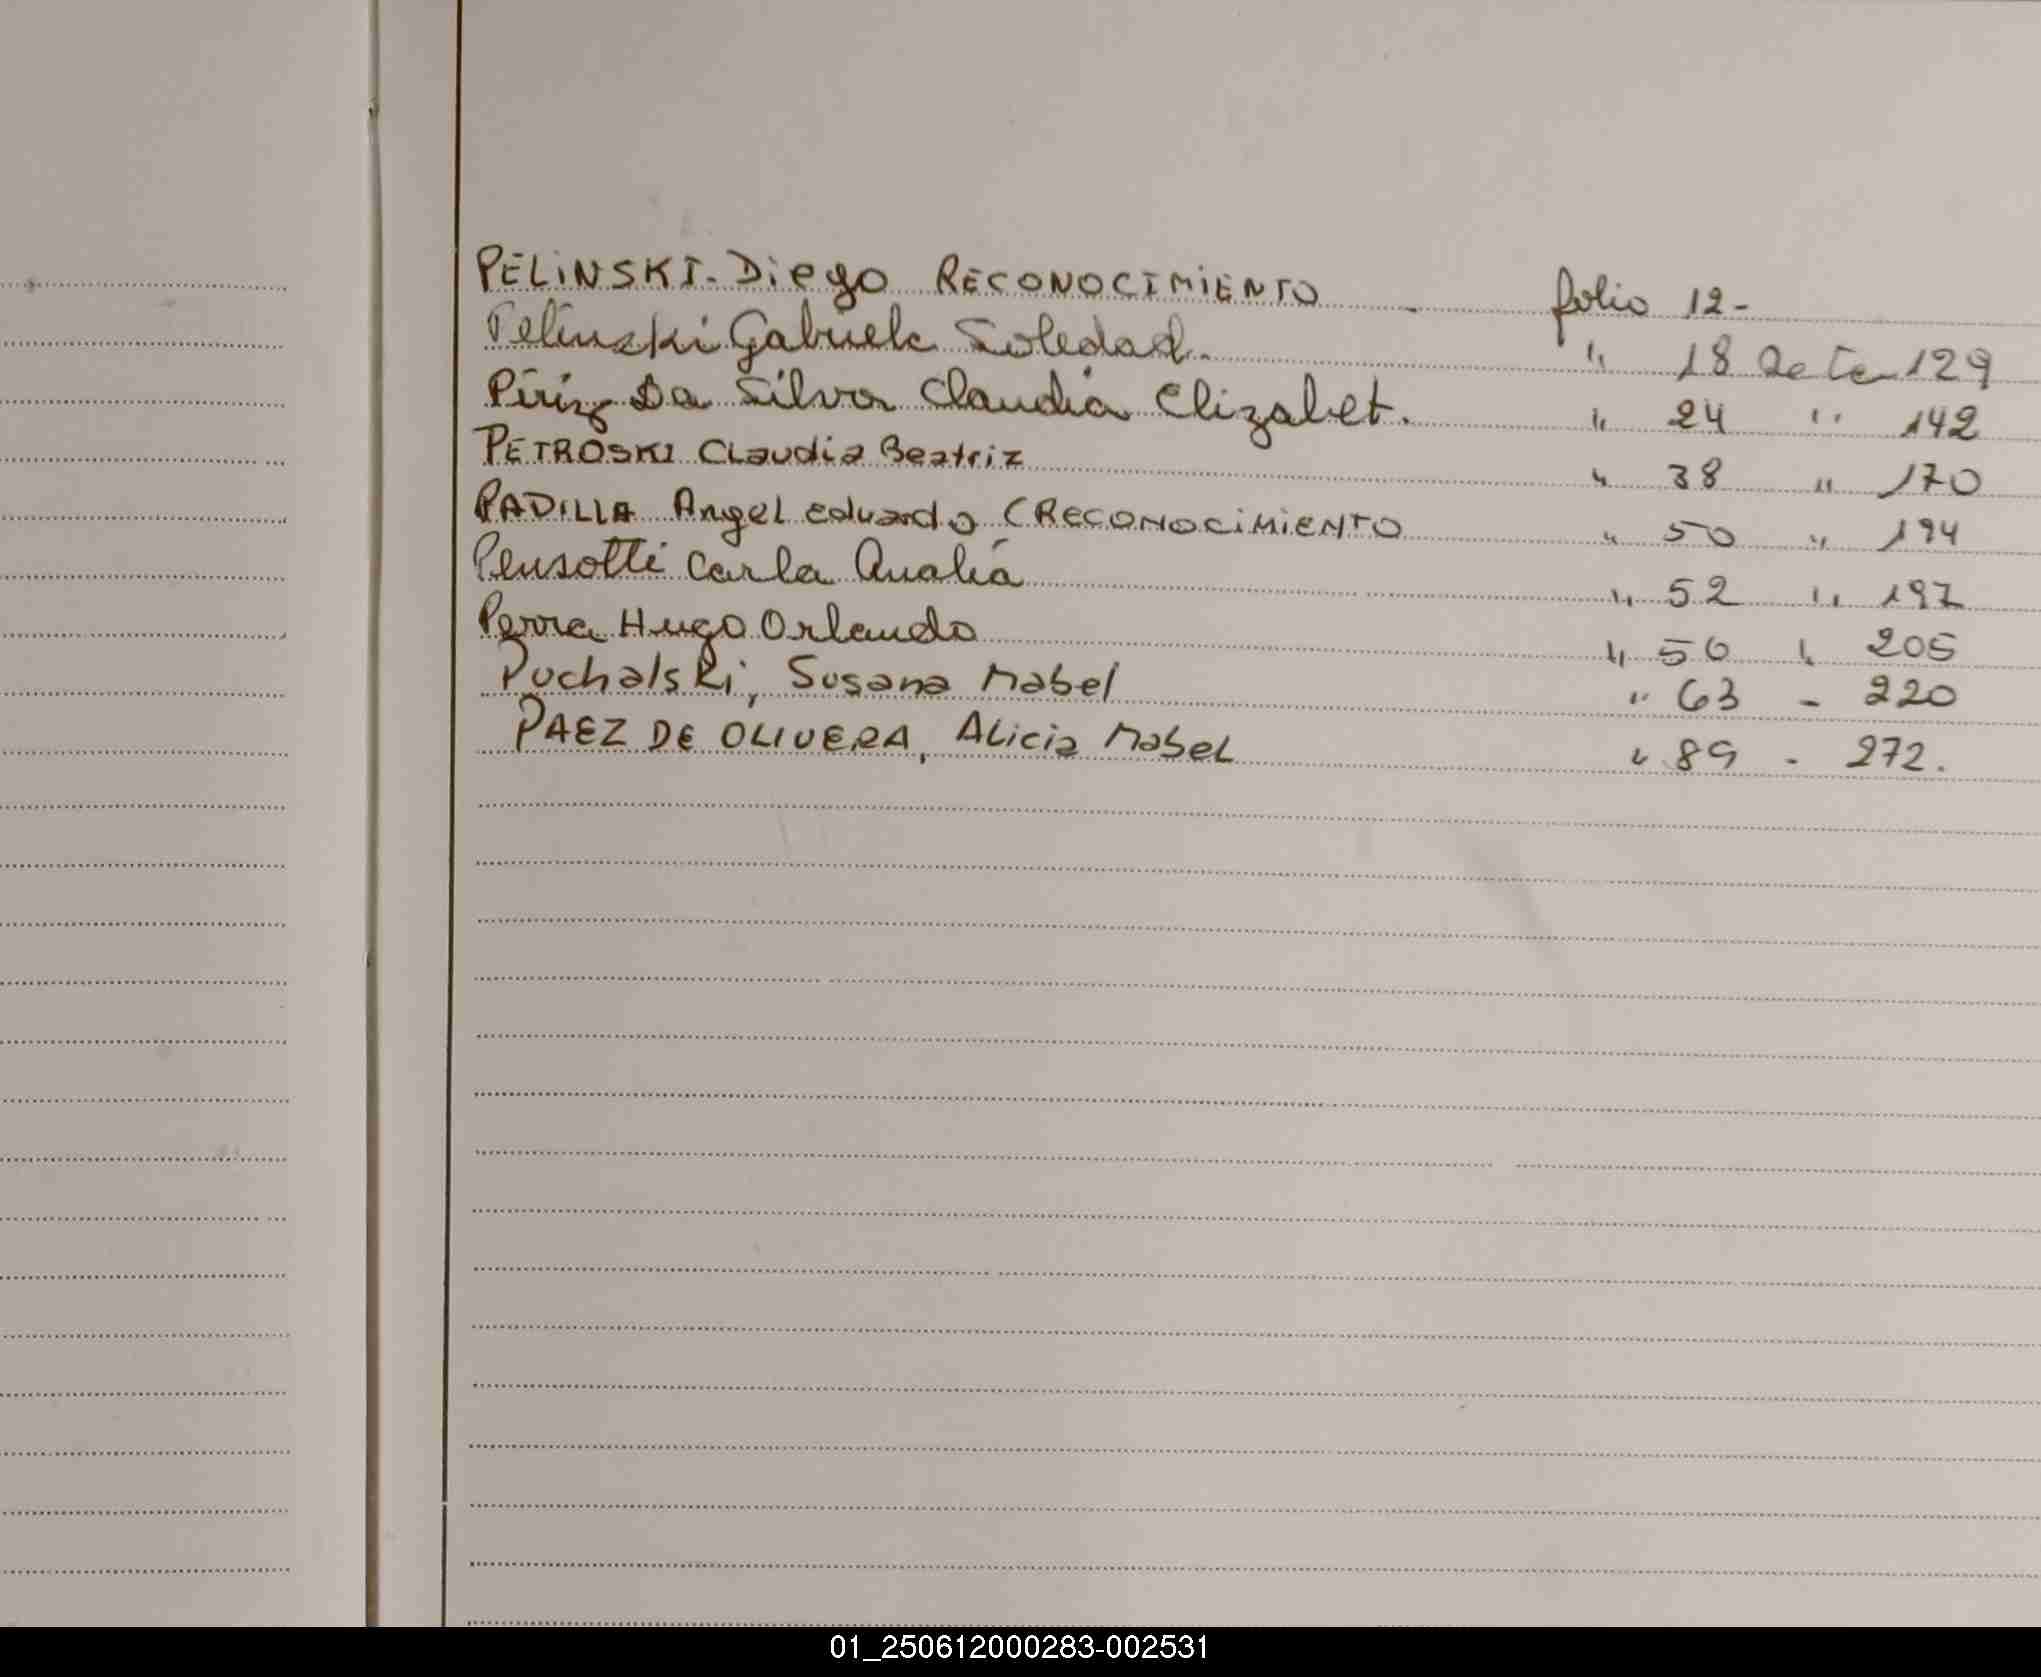 PELINSKI - Diego RECONOCIMIENTO - folio 12 -
Pelinski Gabriele Soledad. " 18 129
Piriz Da Silva Claudia Elizabet. " 24 " 142
PETROSKI Claudia Beatriz " 38 " 170
PADILLA Angel eduardo (RECONOCIMIENTO " 50 " 194
Pensotti Carla Analía " 52 " 197
Perra Hugo Orlando " 56 " 205
Puchalski, Susana Mabel " 63 - 220
PAEZ DE OLIVERA, Alicia Mabel " 89 - 272.
01_250612000283-002531